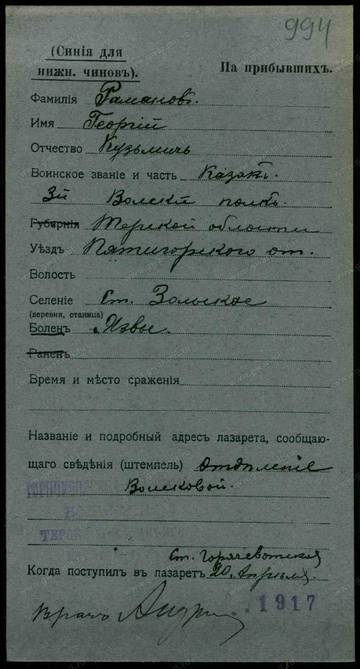 994
(Синія для
нижн. чиновъ).
На прибывшихъ.
Фамилія Рамановъ.
Имя Георгій
Отчество Кузьмичъ
Воинское званіе и часть Казакъ.
3й Волскій полкъ.
Губернія Терской области
Уѣздъ Пятигорскаго от.
Волость
Селеніе Ст. Зольское
(деревня, станица)
Боленъ Язвы.
Раненъ
Время и мѣсто сраженія
Названіе и подробный адресъ лазарета, сообщаю-
щаго свѣдѣнія (штемпель) Отдѣленіе
Волсковой.
Ст. Горячеводская
Когда поступилъ въ лазаретъ 20 Апрѣля.
1917
Врачъ